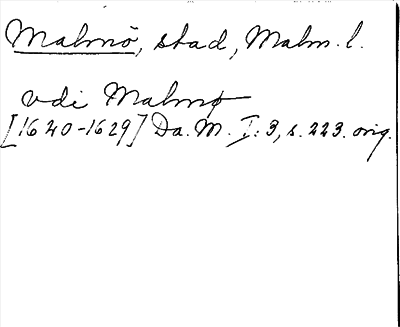 Malmö, stad, Malm. l.
vdi Malmø
[1620-1629] Da. M. I: 3, s. 223. orig.